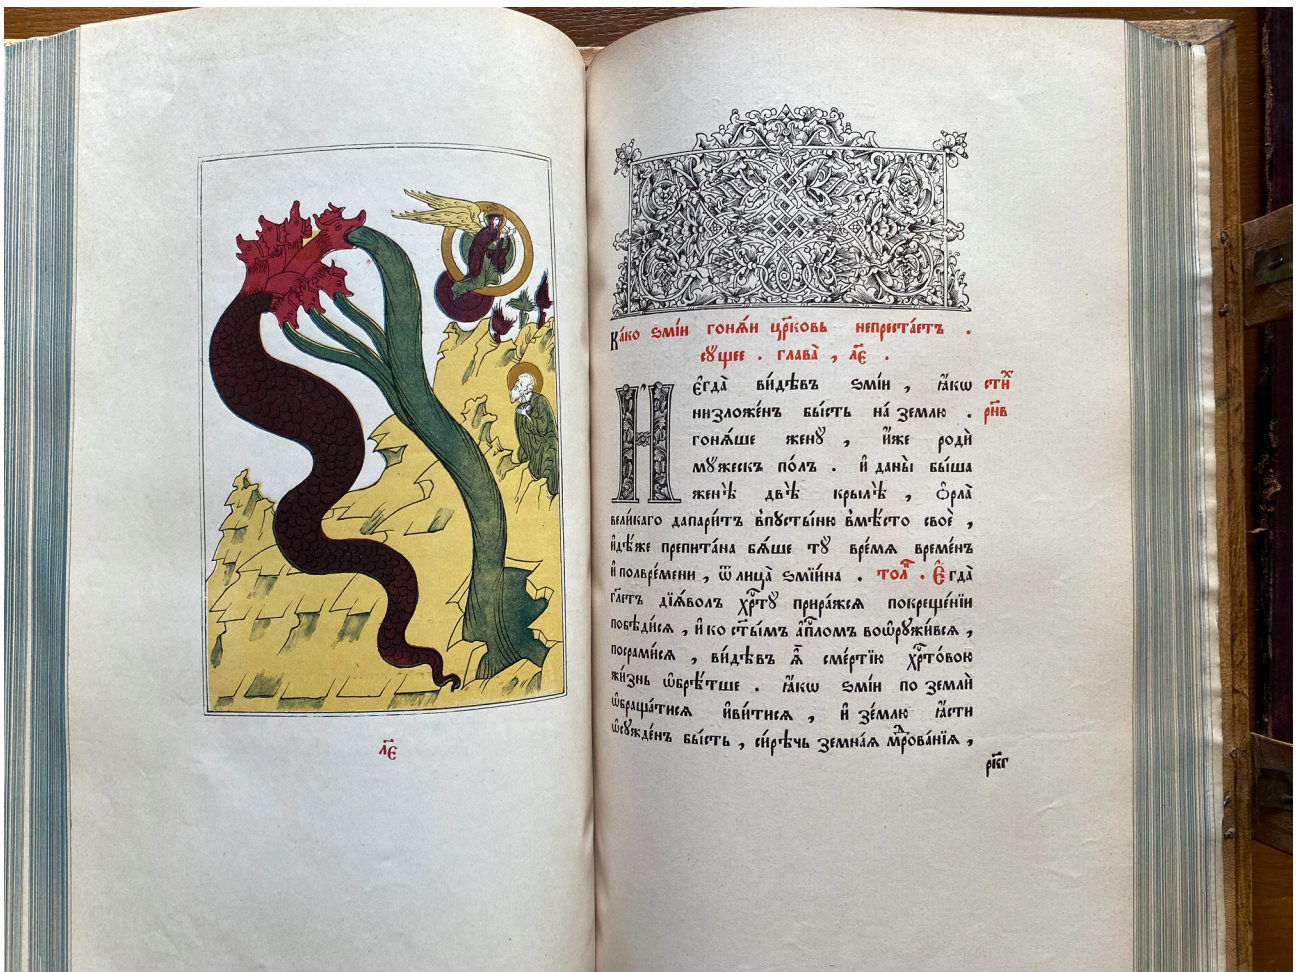 л҃є
Ка́ко ѕмі́й гонѧ́й цр҃ковь непреста́етъ .
сꙋ́щее . глава̀ , л҃є .
Н
є҆гда̀ ви́дѣвъ ѕмі́й , ꙗ҆́кѡ
низложе́нъ бы́сть на́ землю .
гонѧ́ше женꙋ̀ , и҆́же родѝ
мꙋ́жескъ по́лъ . и҆ даны̀ бы́ша
женѣ̀ двѣ̀ крылѣ̀ , ѻ҆рла̀
вели́каго дапари́тъ впꙋсты́ню вмѣ́сто своѐ ,
и҆дѣ́же препита́на бѧ́ше тꙋ̀ вре́мѧ време́нъ
и҆ полвре́мени , ѿ лица̀ ѕмїи́на . тол̾ . Є҆гда̀
гл҃етъ дїѧ́волъ хрⷭ҇тꙋ̀ прира́жсѧ покреще́нїи
побѣди́сѧ , и҆ ко ст҃ы́мъ а҆пⷭ҇ломъ воѡрꙋжи́всѧ ,
посрами́сѧ , ви́дѣвъ ѧ҆̀ сме́ртїю хрⷭ҇то́вою
жи́знь ѡ҆брѣ́тше . ꙗ҆́кѡ ѕмі́й по землѝ
ѡ҆браща́тисѧ и҆ви́тисѧ , и҆ зе́млю ꙗ҆́сти
ѡ҆сꙋжде́нъ бы́сть , си́рѣчь земна́ѧ мꙋⷣрова́нїѧ ,
стиⷯ
рн҃в
рк҃г